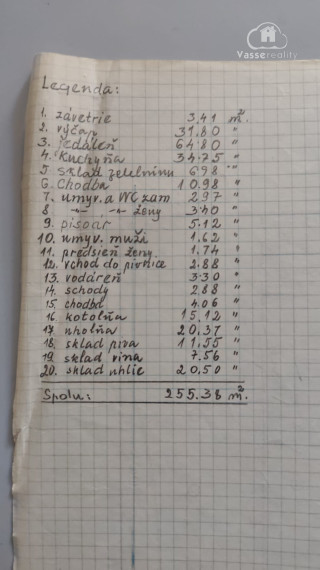 Vassereality
Legenda:
1. závetrie 3,41 m²
2. výčap 31.80 "
3. jedáleň 64.80 "
4. kuchyňa 34.75 "
5 sklad zeleniny 6.98 "
6. chodba 10.98 "
7. umyv. a WC zam 2.97 "
8 -"- -"- ženy 3.40 "
9. pisoar 5.12 "
10. umyv. muži 1,62 "
11. predsieň ženy 1,74 "
12. vchod do pivnice 2.88 "
13. vodáreň 3.30 "
14. schody 2.88 "
15. chodba 4.06 "
16. kotolňa 15,12 "
17. uholňa 20,37 "
18. sklad piva 11,55 "
19. sklad vina 7.56 "
20. sklad uhlie 20,50 "
Spolu: 255.38 m².